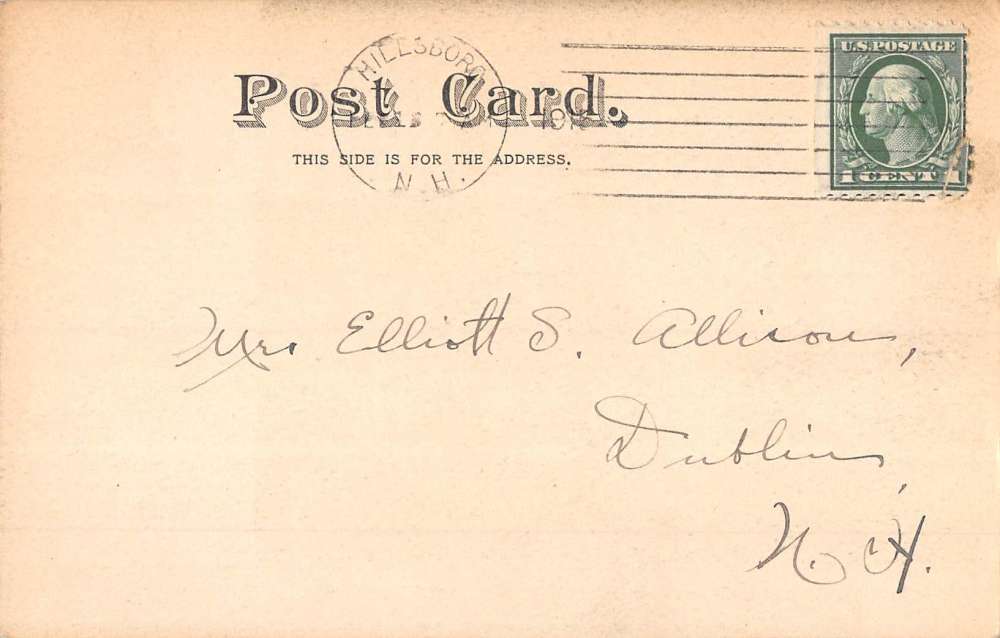 HILLSBORO
N.H.
Post Card.
THIS SIDE IS FOR THE ADDRESS.
U.S. POSTAGE
1 CENT 1
Mrs Elliott S. Allison,
Dublin,
N. H.